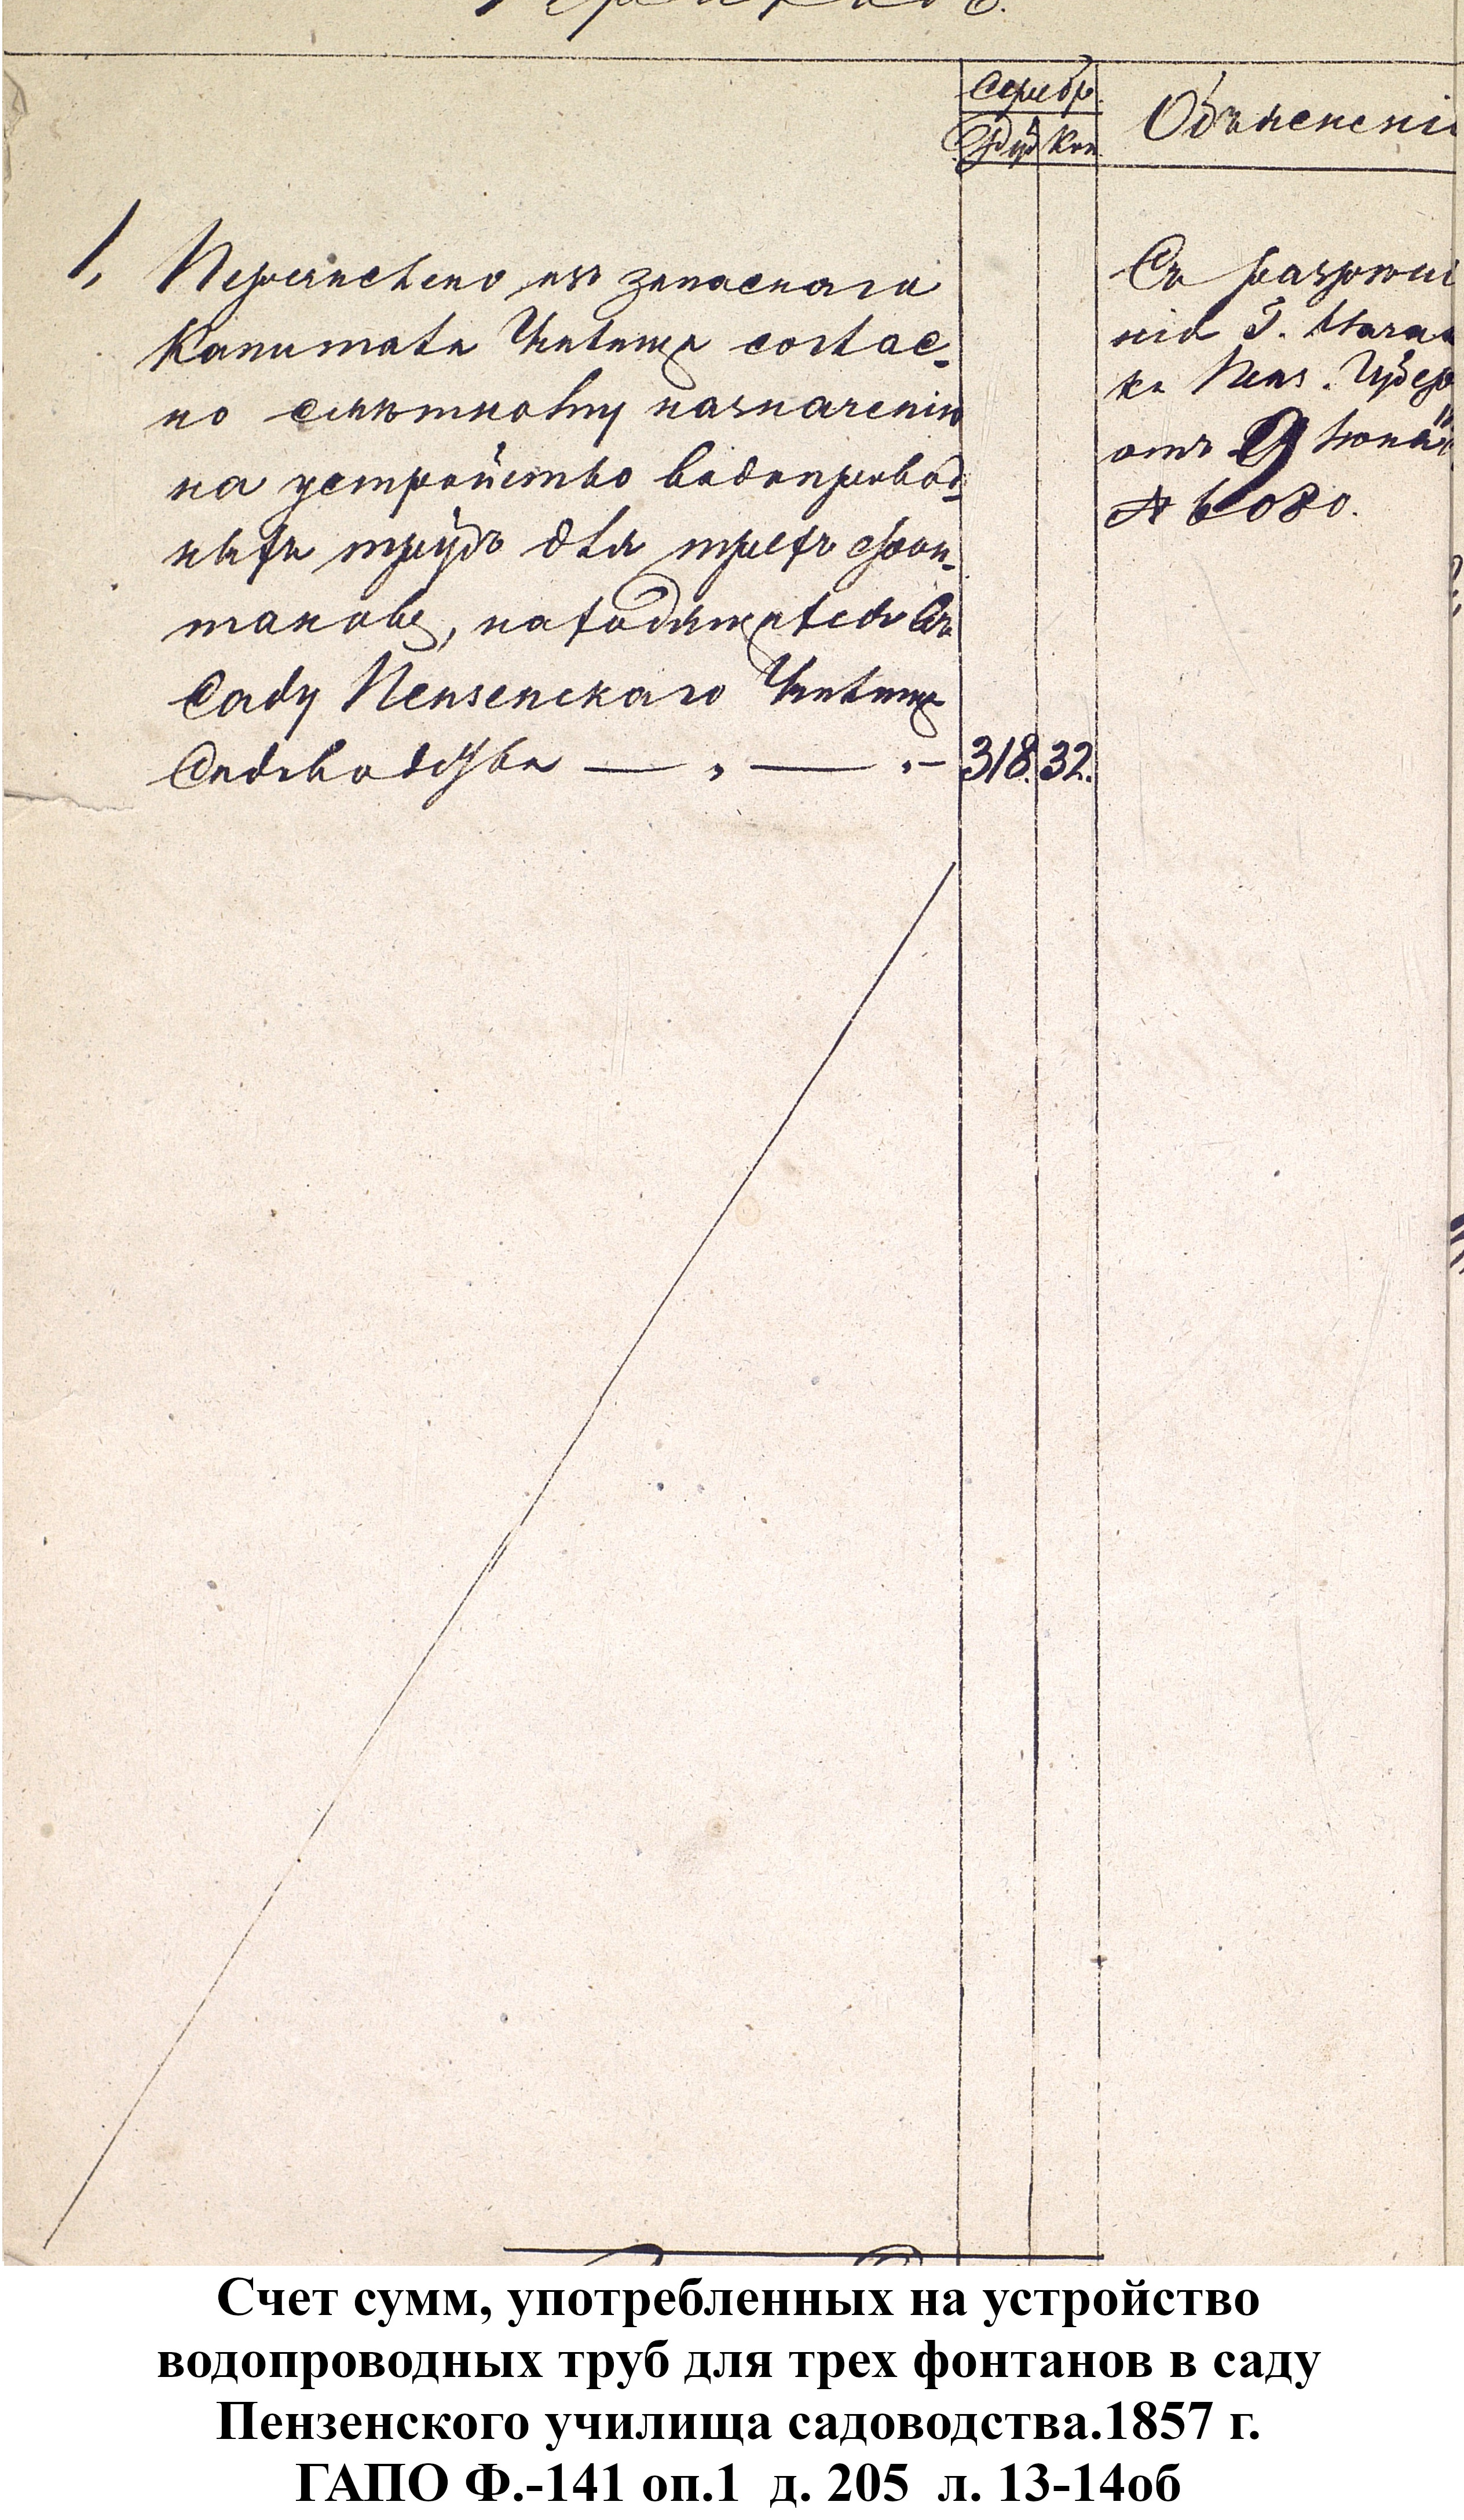 Серебр.
Руб Коп
Объясненi
1, Перечислено изъ запаснаго
Капитала Училища соглас-
но смѣтному назначенiю
на устройство водопровод-
ныхъ трубъ для трехъ фон-
тановъ, находящихся въ
Саду Пензенскаго Училища
Садоводства — „ — „ — 318. 32.
Съ разрѣше
нiя Г. Начал
ка Пенз. Губер
отъ 9 Iюня
№ 6080.
Счет сумм, употребленных на устройство
водопроводных труб для трех фонтанов в саду
Пензенского училища садоводства.1857 г.
ГАПО Ф.-141 оп.1 д. 205 л. 13-14об